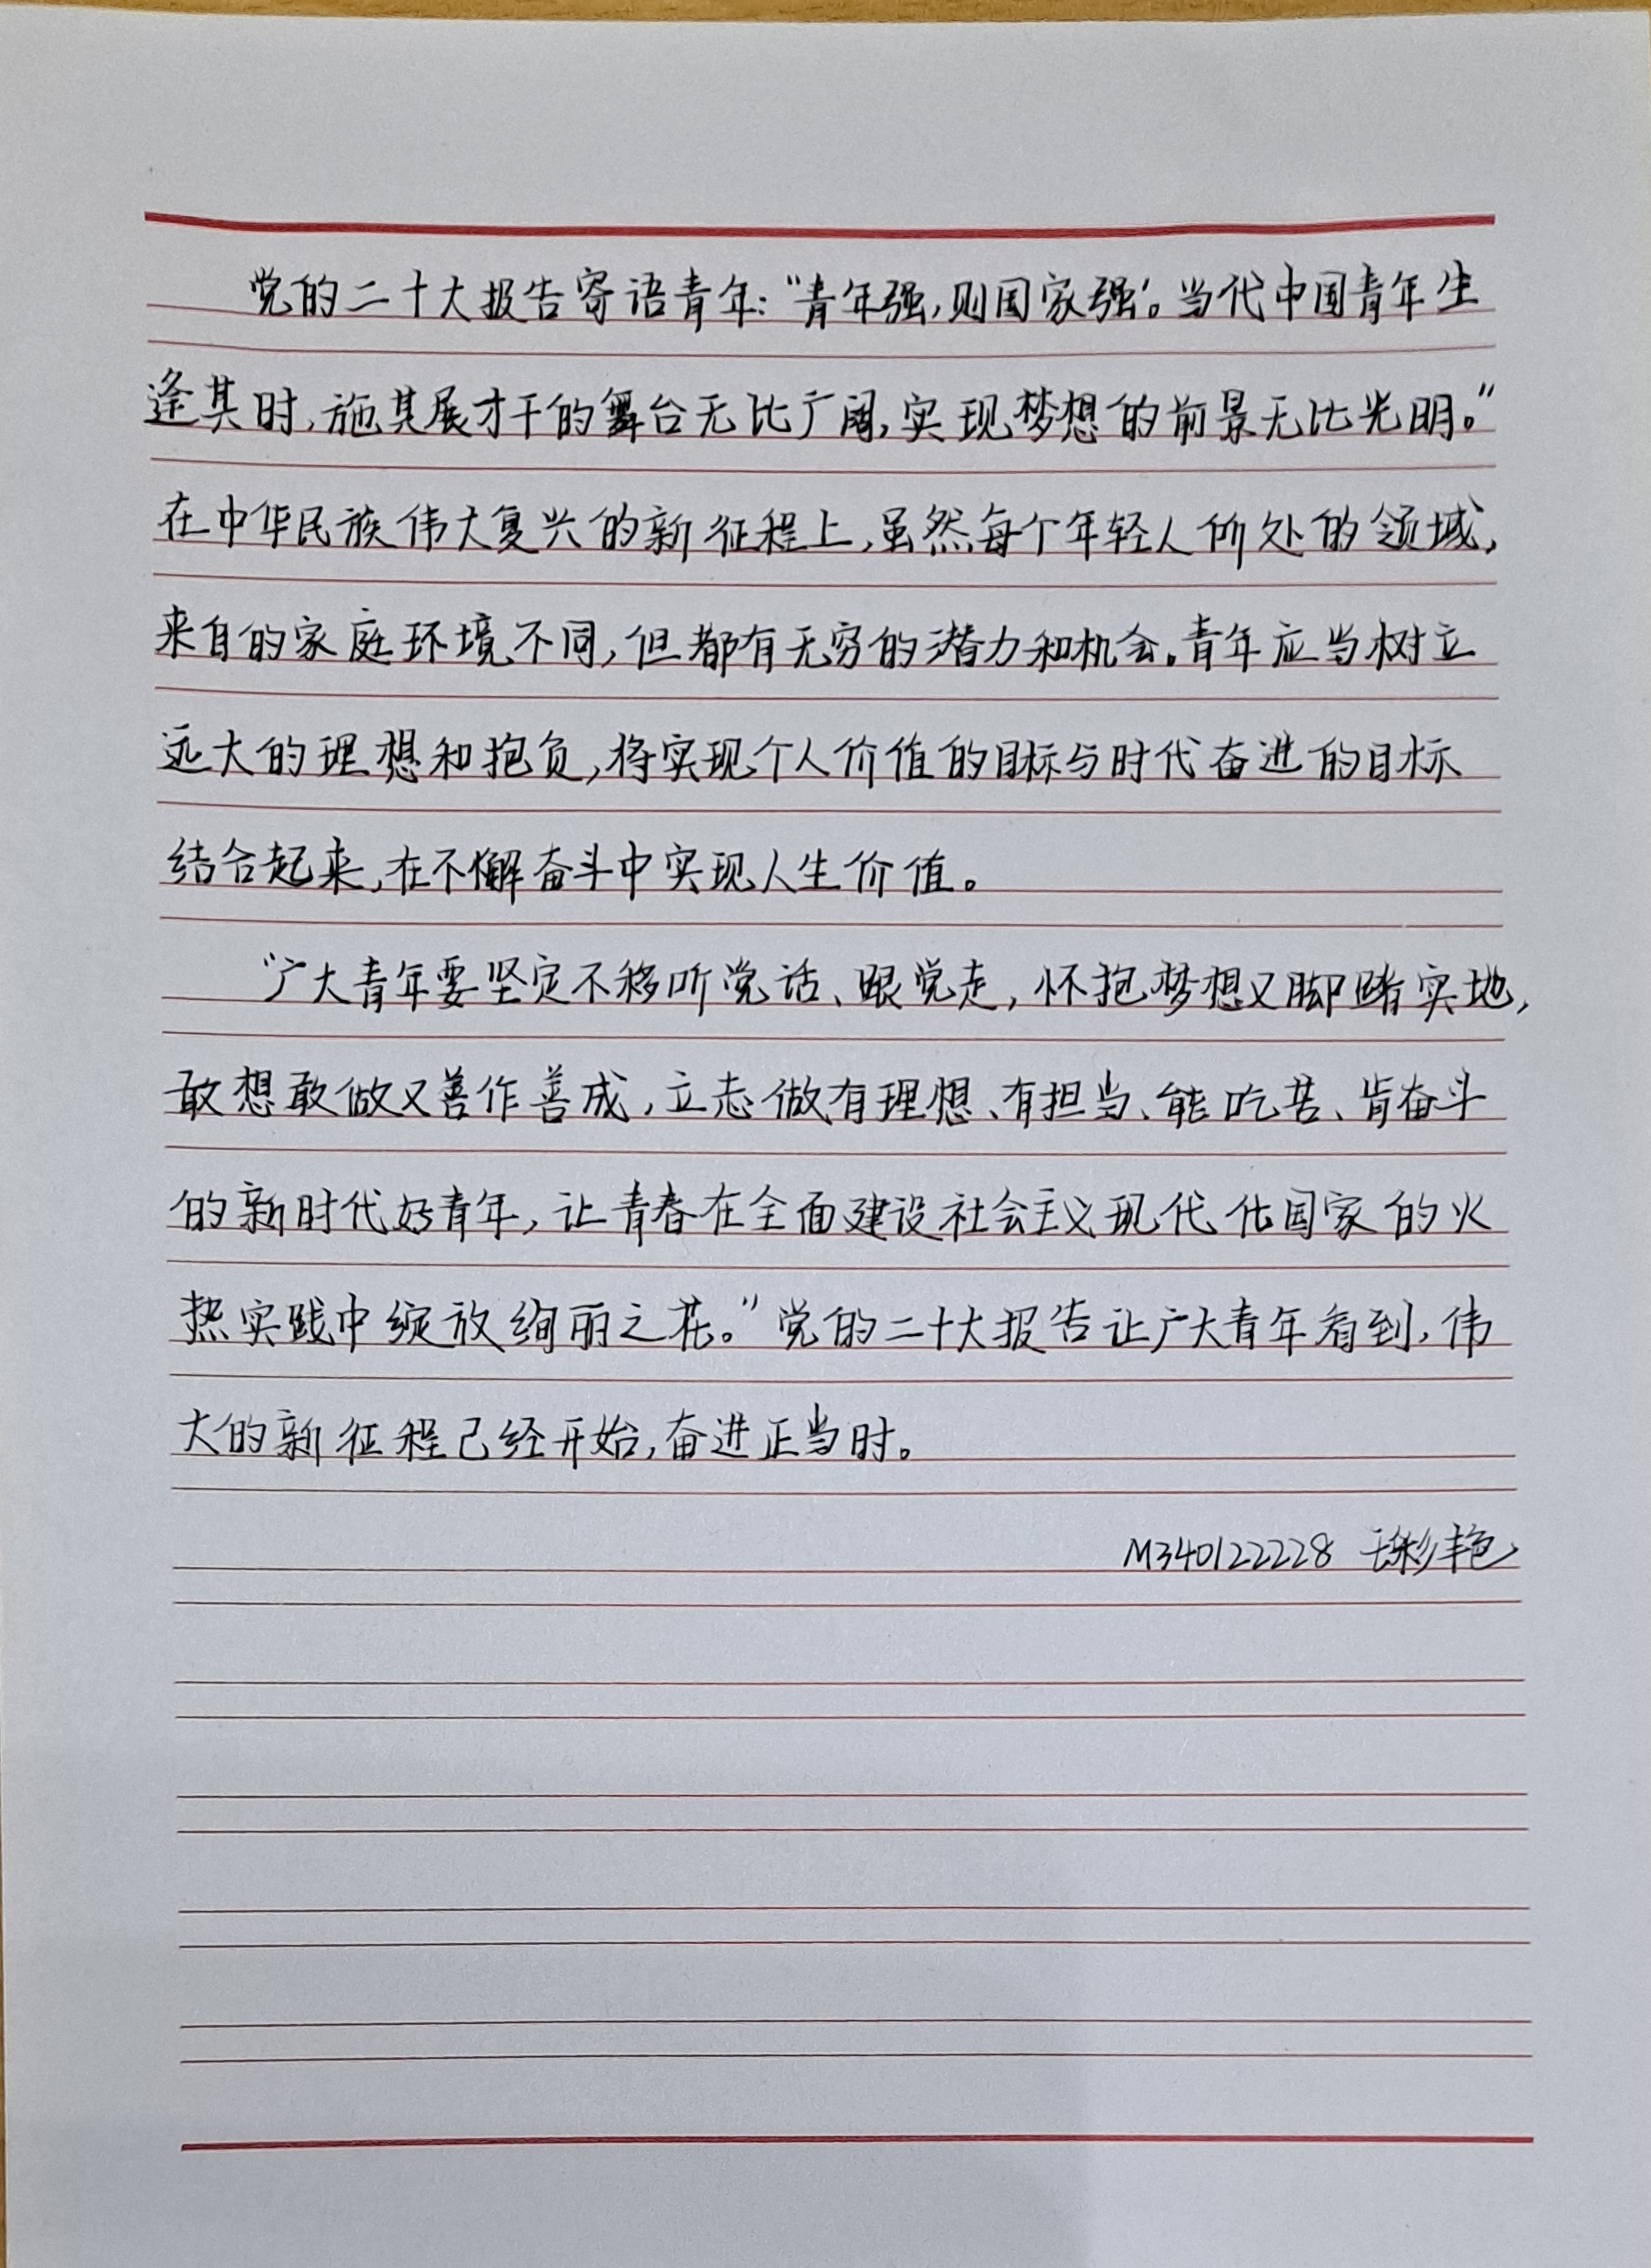 党的二十大报告寄语青年:“青年强,则国家强’。当代中国青年生
逢其时,施其展才干的舞台无比广阔,实现梦想的前景无比光明。”
在中华民族伟大复兴的新征程上,虽然每个年轻人所处的领域,
来自的家庭环境不同,但都有无穷的潜力和机会。青年应当树立
远大的理想和抱负,将实现个人价值的目标与时代奋进的目标
结合起来,在不懈奋斗中实现人生价值。
“广大青年要坚定不移听党话、跟党走,怀抱梦想又脚踏实地,
敢想敢做又善作善成,立志做有理想、有担当、能吃苦、肯奋斗
的新时代好青年,让青春在全面建设社会主义现代化国家的火
热实践中绽放绚丽之花。”党的二十大报告让广大青年看到,伟
大的新征程已经开始,奋进正当时。
M340122228 彩艳